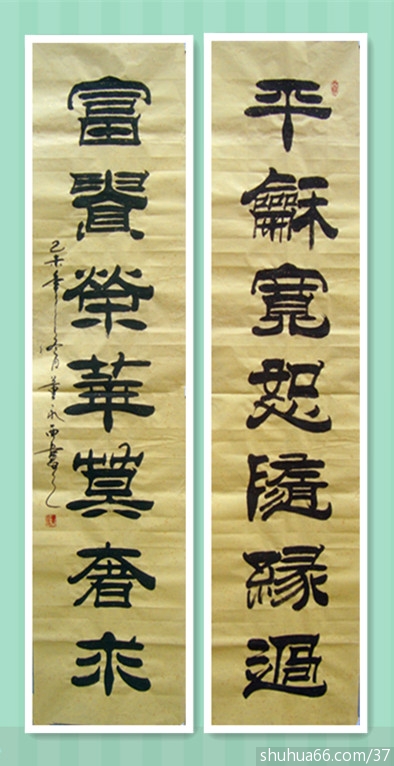 平龢寬恕隨緣過
富貴榮華莫奢求
未年冬月董永西書
shuhua66.com/37